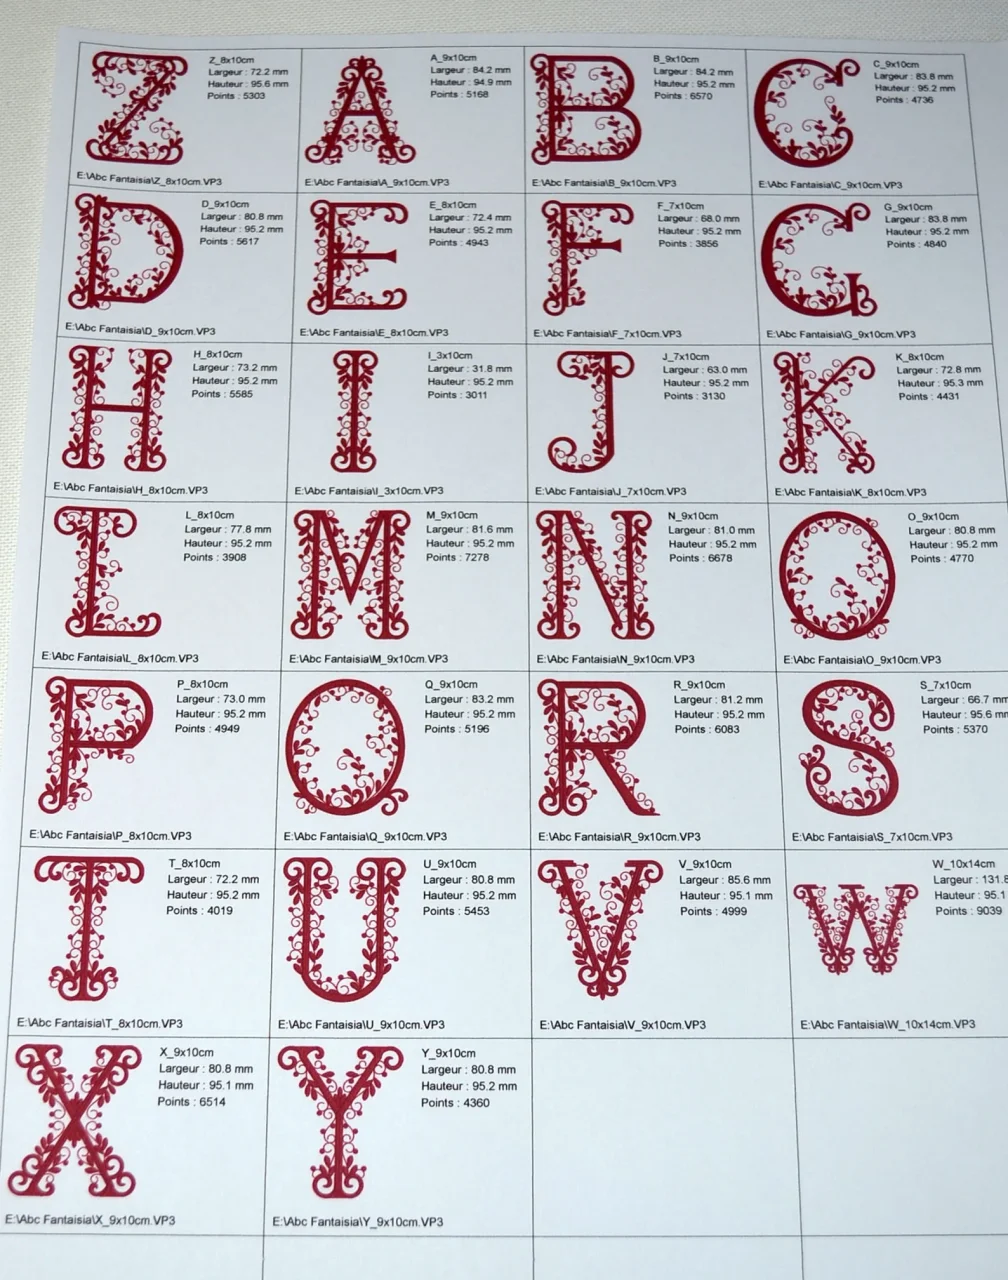 Z
Z_8x10cm
Largeur : 72.2 mm
Hauteur : 95.6 mm
Points : 5303
E:\Abc Fantaisia\Z_8x10cm.VP3
A
A_9x10cm
Largeur : 84.2 mm
Hauteur : 94.9 mm
Points : 5168
E:\Abc Fantaisia\A_9x10cm.VP3
B
B_9x10cm
Largeur : 84.2 mm
Hauteur : 95.2 mm
Points : 6570
E:\Abc Fantaisia\B_9x10cm.VP3
C
C_9x10cm
Largeur : 83.8 mm
Hauteur : 95.2 mm
Points : 4736
E:\Abc Fantaisia\C_9x10cm.VP3
D
D_9x10cm
Largeur : 80.8 mm
Hauteur : 95.2 mm
Points : 5617
E:\Abc Fantaisia\D_9x10cm.VP3
E
E_8x10cm
Largeur : 72.4 mm
Hauteur : 95.2 mm
Points : 4943
E:\Abc Fantaisia\E_8x10cm.VP3
F
F_7x10cm
Largeur : 68.0 mm
Hauteur : 95.2 mm
Points : 3856
E:\Abc Fantaisia\F_7x10cm.VP3
G
G_9x10cm
Largeur : 83.8 mm
Hauteur : 95.2 mm
Points : 4840
E:\Abc Fantaisia\G_9x10cm.VP3
H
H_8x10cm
Largeur : 73.2 mm
Hauteur : 95.2 mm
Points : 5585
E:\Abc Fantaisia\H_8x10cm.VP3
I
I_3x10cm
Largeur : 31.8 mm
Hauteur : 95.2 mm
Points : 3011
E:\Abc Fantaisia\I_3x10cm.VP3
J
J_7x10cm
Largeur : 63.0 mm
Hauteur : 95.2 mm
Points : 3130
E:\Abc Fantaisia\J_7x10cm.VP3
K
K_8x10cm
Largeur : 72.8 mm
Hauteur : 95.3 mm
Points : 4431
E:\Abc Fantaisia\K_8x10cm.VP3
L
L_8x10cm
Largeur : 77.8 mm
Hauteur : 95.2 mm
Points : 3908
E:\Abc Fantaisia\L_8x10cm.VP3
M
M_9x10cm
Largeur : 81.6 mm
Hauteur : 95.2 mm
Points : 7278
E:\Abc Fantaisia\M_9x10cm.VP3
N
N_9x10cm
Largeur : 81.0 mm
Hauteur : 95.2 mm
Points : 6678
E:\Abc Fantaisia\N_9x10cm.VP3
O
O_9x10cm
Largeur : 80.8 mm
Hauteur : 95.2 mm
Points : 4770
E:\Abc Fantaisia\O_9x10cm.VP3
P
P_8x10cm
Largeur : 73.0 mm
Hauteur : 95.2 mm
Points : 4949
E:\Abc Fantaisia\P_8x10cm.VP3
Q
Q_9x10cm
Largeur : 83.2 mm
Hauteur : 95.2 mm
Points : 5196
E:\Abc Fantaisia\Q_9x10cm.VP3
R
R_9x10cm
Largeur : 81.2 mm
Hauteur : 95.2 mm
Points : 6083
E:\Abc Fantaisia\R_9x10cm.VP3
S
S_7x10cm
Largeur : 66.7 mm
Hauteur : 95.6 mm
Points : 5370
E:\Abc Fantaisia\S_7x10cm.VP3
T
T_8x10cm
Largeur : 72.2 mm
Hauteur : 95.2 mm
Points : 4019
E:\Abc Fantaisia\T_8x10cm.VP3
U
U_9x10cm
Largeur : 80.8 mm
Hauteur : 95.2 mm
Points : 5453
E:\Abc Fantaisia\U_9x10cm.VP3
V
V_9x10cm
Largeur : 85.6 mm
Hauteur : 95.1 mm
Points : 4999
E:\Abc Fantaisia\V_9x10cm.VP3
W
W_10x14cm
Largeur : 131.8
Hauteur : 95.1
Points : 9039
E:\Abc Fantaisia\W_10x14cm.VP3
X
X_9x10cm
Largeur : 80.8 mm
Hauteur : 95.1 mm
Points : 6514
E:\Abc Fantaisia\X_9x10cm.VP3
Y
Y_9x10cm
Largeur : 80.8 mm
Hauteur : 95.2 mm
Points : 4360
E:\Abc Fantaisia\Y_9x10cm.VP3